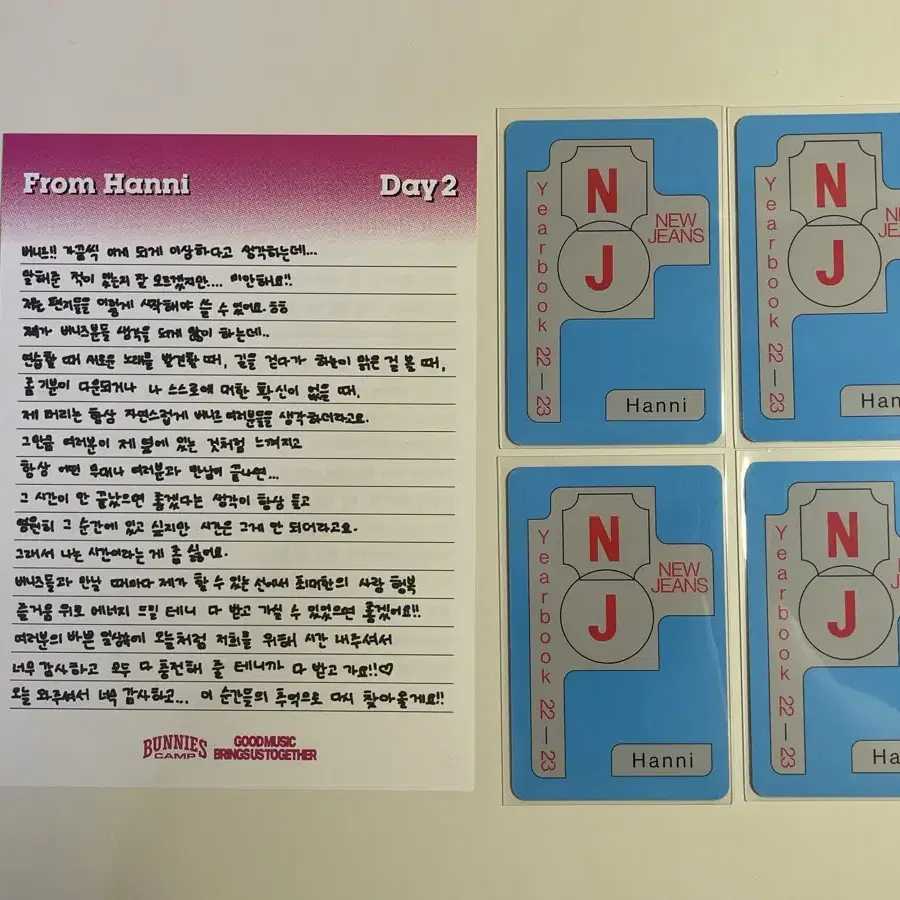 From Hanni Day 2
버니즈!! 가끔씩 이게 되게 이상하다고 생각하는데...
말해준 적이 있는지 잘 모르겠지만.... 미안해요!!
저는 편지들을 이렇게 시작해야 쓸 수 있어요. ㅎㅎ
제가 버니즈분들 생각을 되게 많이 하는데..
연습할 때 새로운 노래를 발견할 때, 길을 걷다가 하늘이 맑은 걸 볼 때,
좀 기분이 다운되거나 나 스스로에 대한 확신이 없을 때,
제 머리는 항상 자연스럽게 버니즈 여러분들을 생각하더라고요.
그만큼 여러분이 제 옆에 있는 것처럼 느껴지고
항상 어떤 무대나 여러분과 만남이 끝나면...
그 시간이 안 끝났으면 좋겠다는 생각이 항상 들고
영원히 그 순간에 있고 싶지만 시간은 그게 안 되더라고요.
그래서 나는 시간이라는 게 좀 싫어요.
버니즈들과 만날 때마다 제가 할 수 있는 선에서 최대한의 사랑 행복
즐거움 위로 에너지 드릴 테니 다 받고 가실 수 있었으면 좋겠어요!!
여러분의 바쁜 일상속에 오늘처럼 저희를 위해 시간 내주셔서
너무 감사하고 모두 다 충전해 줄 테니까 다 받고 가요!!♡
오늘 와주셔서 너무 감사하고... 이 순간들의 추억으로 다시 찾아올게요!!
BUNNIES
CAMP
GOOD MUSIC
BRINGS US TOGETHER
N
J
NEW
JEANS
Yearbook 22—23
Hanni
N
J
Yearbook 22—23
N
J
NEW
JEANS
Yearbook 22—23
Hanni
N
J
Yearbook 22—23